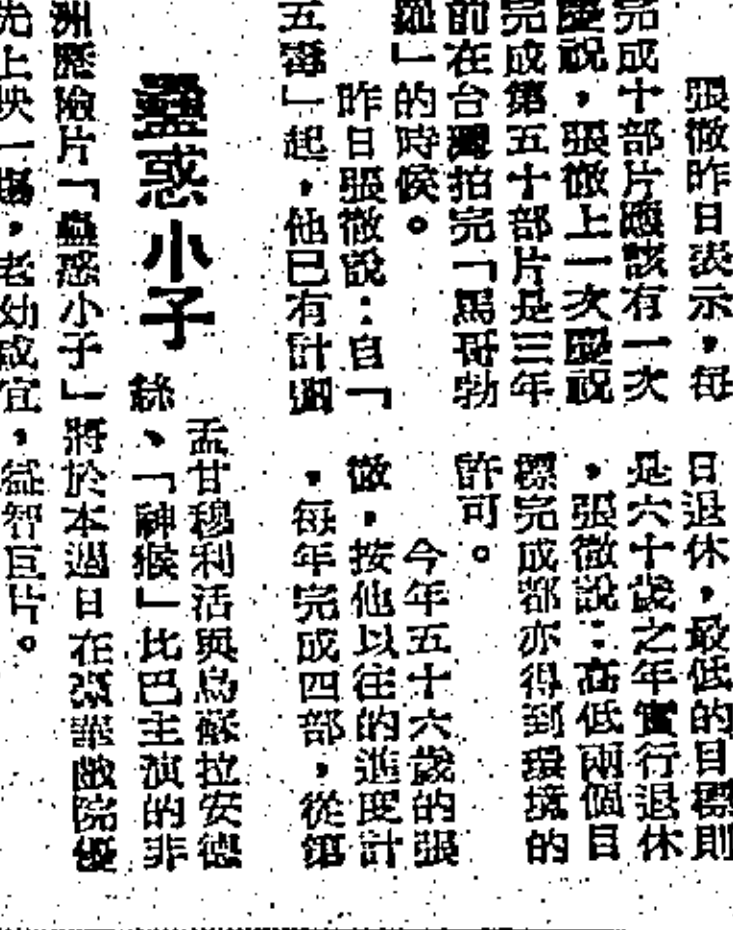 張徹昨日表示,每
完成十部片應該有一次
慶祝,張徹上一次慶祝
完成第五十部片是三年
前在台灣拍完「馬哥勃
羅」的時候。
昨日張徹說:自「
五毒」起,他已有計劃
日退休,最低的目標則
是六十歲之年實行退休
,張徹說:高低兩個目
標完成都亦得到環境的
許可。
今年五十六歲的張
徹,按他以往的進度計
,每年完成四部,從第
蠱惑小子
孟甘穆利活與烏蘇拉安德
絲、「神猴」比巴主演的非
洲歷險片「蠱惑小子」將於本週日在華戲院優
先上映一場,老幼咸宜,益智巨片。